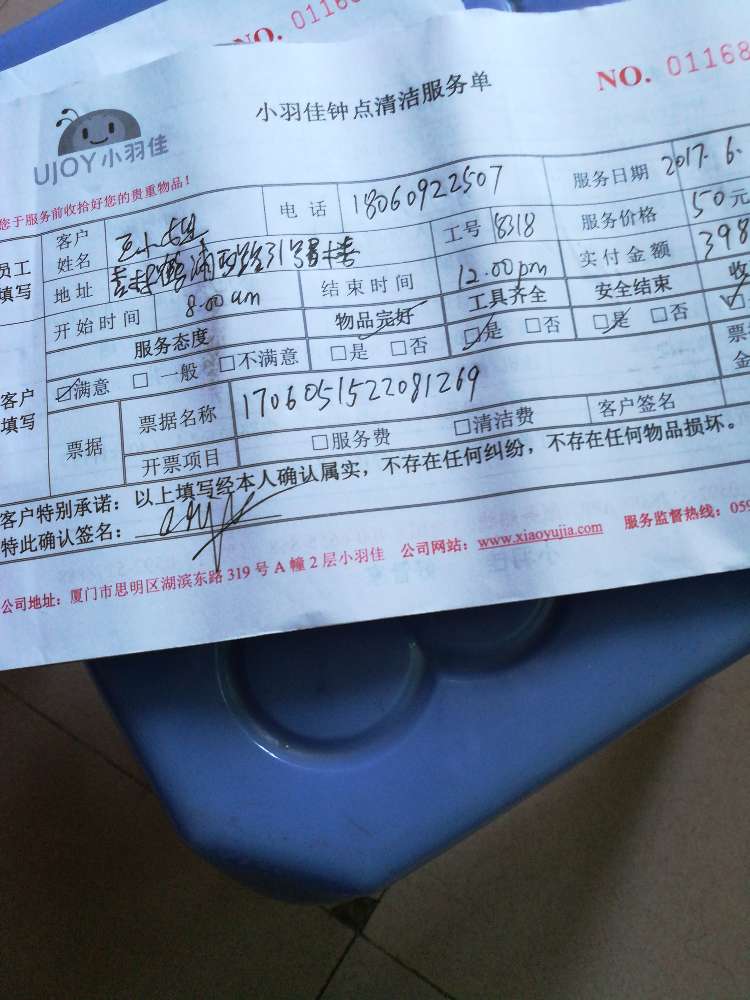 NO. 01168
小羽佳钟点清洁服务单
NO. 01168
UJOY小羽佳
您于服务前收拾好您的贵重物品!
员工填写
客户姓名 王小姐 电话 18060922507 服务日期 2017.6.
地址 工号 8318 服务价格 50元
开始时间 8.00am 结束时间 12.00pm 实付金额 398
服务态度 物品完好 工具齐全 安全结束 收
客户填写
满意 一般 不满意 是 否 是 否 是 否
票据 票据名称 1706051522081269 票
开票项目 服务费 清洁费 客户签名 金
客户特别承诺:以上填写经本人确认属实,不存在任何纠纷,不存在任何物品损坏。
特此确认签名:
公司地址:厦门市思明区湖滨东路319号A幢2层小羽佳 公司网站:www.xiaoyujia.com 服务监督热线:059